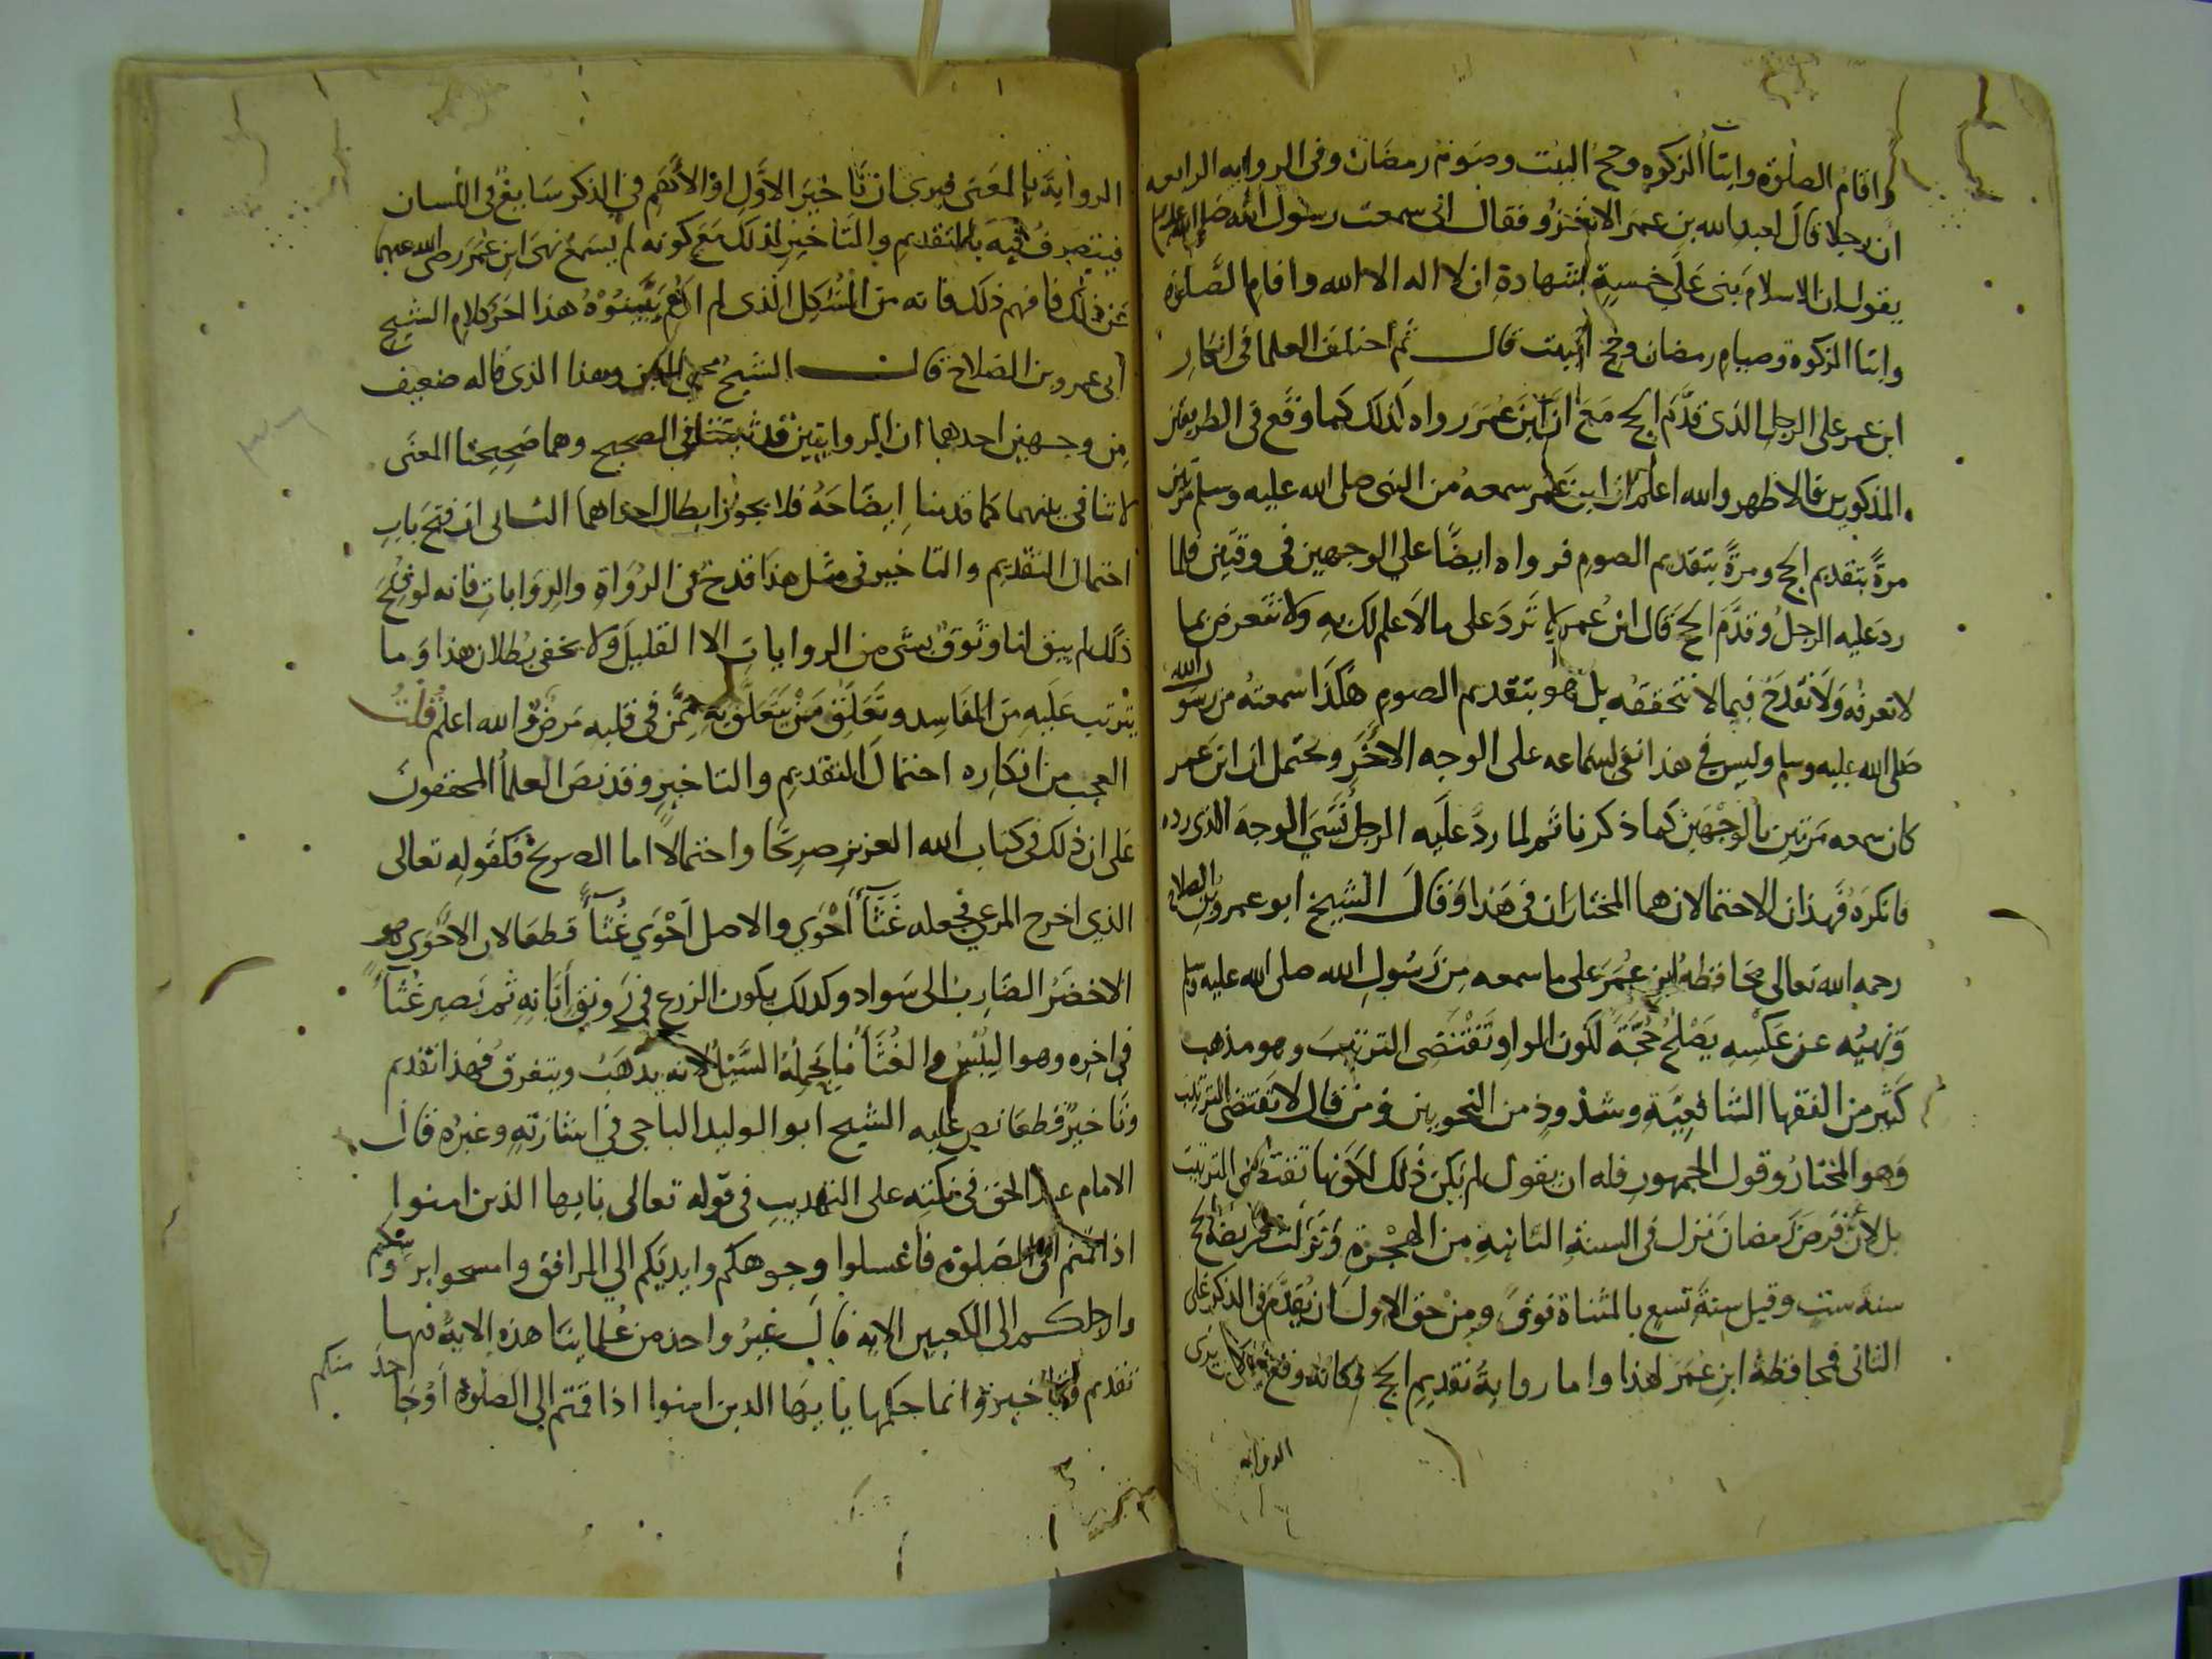 واقام الصلوة وايتاء الزكوة وحج البيت وصوم رمضان وفى الرواية الرابعه
ان رجلا قال لعبد الله بن عمر الا تغزو فقال انى سمعت رسول الله صلى الله عليه وسلم
يقول ان الاسلام بنى على خمسة شهادة ان لا اله الا الله واقام الصلوة
وايتا الزكوة وصيام رمضان وحج البيت قال ثم اختلف العلما فى انكار
ابن عمر على الرجل الذى قدم الحج مع ان ابن عمر رواه كذلك كما وقع فى الطريقين
المذكورين فالاظهر والله اعلم ان ابن عمر سمعه من النبى صلى الله عليه وسلم مرتين
مرة بتقديم الحج ومرة بتقديم الصوم فرواه ايضا على الوجهين فى وقتين فلما
رد عليه الرجل وقدم الحج قال ابن عمر لا ترد على ما لا علم لك به ولا تتعرض بما
لا تعرفه ولا تقدح فيما لا تتحققه بل هو بتقديم الصوم هكذا سمعته من رسول الله
صلى الله عليه وسلم وليس فى هذا نفى لسماعه على الوجه الاخر ويحتمل ان ابن عمر
كان سمعه مرتين بالوجهين كما ذكرنا ثم لما رد عليه الرجل نسى الوجه الذى رده
فانكره فهذان الاحتمالان هما المختاران فى هذا وقال الشيخ ابو عمرو بن الصلاح
رحمه الله تعالى محافظة ابن عمر على ما سمعه من رسول الله صلى الله عليه وسلم
ونهيه عن عكسه يصلح حجة لكون الواو تقتضى الترتيب وهو مذهب
كثير من الفقها الشافعية وشذوذ من النحويين ومن قال لا تقتضى الترتيب
وهو المختار وقول الجمهور فله ان يقول لم يكن ذلك لكونها تقتضى الترتيب
بل لان فرض رمضان نزل فى السنة الثانية من الهجرة ونزلت فريضة الحج
سنة ست وقيل سنة تسع بالمثناة فوق ومن حق الاول ان يقدم فى الذكر على
الثانى فمحافظة ابن عمر لهذا واما رواية تقديم الحج فكانه وقع ممن كان يرى
الرواية
الرواية بالمعنى فيرى ان تاخير الاول او الاهم فى الذكر سايغ فى اللسان
فيتصرف فيه بالتقديم والتاخير لذلك مع كونه لم يسمع نهى ابن عمر رضى الله عنهما
عن ذلك فافهم ذلك فانه من المشكل الذى لم ارهم يبينوه هذا اخر كلام الشيخ
ابى عمرو بن الصلاح قال الشيخ محيى الدين وهذا الذى قاله ضعيف
من وجهين احدهما ان الروايتين قد ثبتتا فى الصحيح وهما صحيحتا المعنى
لا تنافى بينهما كما قدمنا ايضاحه فلا يجوز ابطال احداهما الثانى ان فتح باب
احتمال التقديم والتاخير فى مثل هذا قدح فى الرواة والروايات فانه لو فتح
ذلك لم يبق لنا وثوق بشى من الروايات الا القليل ولا يخفى بطلان هذا وما
يترتب عليه من المفاسد وتعلق من يتعلق به ممن فى قلبه مرض والله اعلم قلت
العجب من انكاره احتمال التقديم والتاخير وقد نص العلما المحققون
على ان ذلك فى كتاب الله العزيز صريحا واحتمالا اما الصريح فكقوله تعالى
الذي اخرج المرعى فجعله غثآ احوي والاصل احوي غثآ قطعا لان الاحوى هو
الاخضر الضارب الى سواد وكذلك يكون الزرع في رونق ابانه ثم يصير غثآ
في اخره وهو اليبس والغثآ ما يحمله السيل لانه يذهب ويتفرق فهذا تقديم
وتاخير قطعا نص عليه الشيخ ابو الوليد الباجى في اشارته وغيره قال
الامام عبد الحق فى نكته على التهذيب فى قوله تعالى يايها الذين امنوا
اذا قمتم الى الصلوة فاغسلوا وجوهكم وايديكم الي المرافق وامسحوا بروسكم
وارجلكم الى الكعبين الاية قال غير واحد من علماينا هذه الاية فيها
تقديم وتاخير وانما حكمها يا ايها الذين امنوا اذا قمتم الى الصلوة او جا احد منكم